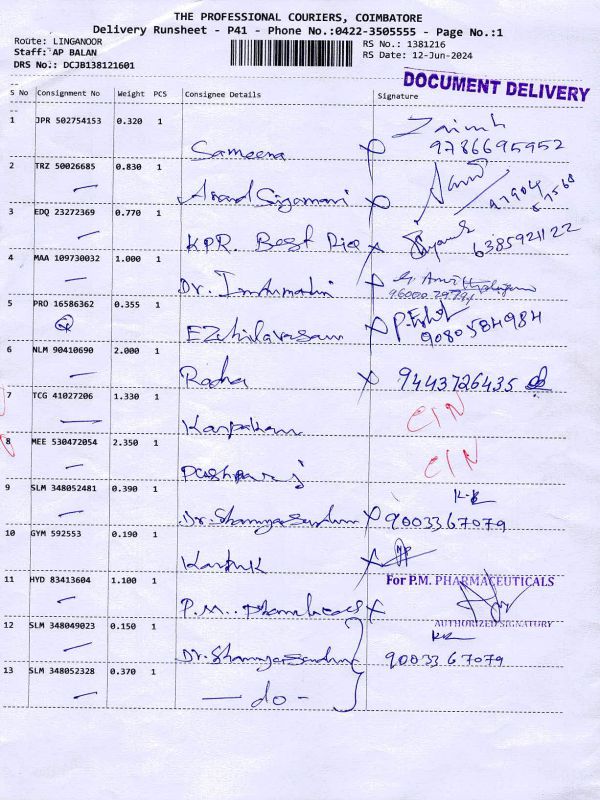 THE PROFESSIONAL COURIERS, COIMBATORE
Delivery Runsheet - P41 - Phone No.:0422-3505555 - Page No.:1
Route: LINGANOOR
Staff: AP BALAN
DRS No.: DCJB138121601
RS No.: 1381216
RS Date: 12-Jun-2024
DOCUMENT DELIVERY
S No Consignment No Weight PCS Consignee Details Signature
1 JPR 502754153 0.320 1
Sameena 9786695952
2 TRZ 50026685 0.830 1
Anand Sigamani
3 EDQ 23272369 0.770 1
KPR. Best Rice 6385921122
4 MAA 109730032 1.000 1
Dr. Indumathi
5 PRO 16586362 0.355 1
Ezhilavasan 9080584984
6 NLM 90410690 2.000 1
Radha 9443726435
7 TCG 41027206 1.330 1
Karpakam CIN
8 MEE 530472054 2.350 1
Pushparaj CIN
9 SLM 348052481 0.390 1
Dr. 9003367079
10 GYM 592553 0.190 1
Kartik
11 HYD 83413604 1.100 1
For P.M. PHARMACEUTICALS
P.M.
AUTHORIZED SIGNATORY
12 SLM 348049023 0.150 1
Dr. 9003367079
13 SLM 348052328 0.370 1
— do —